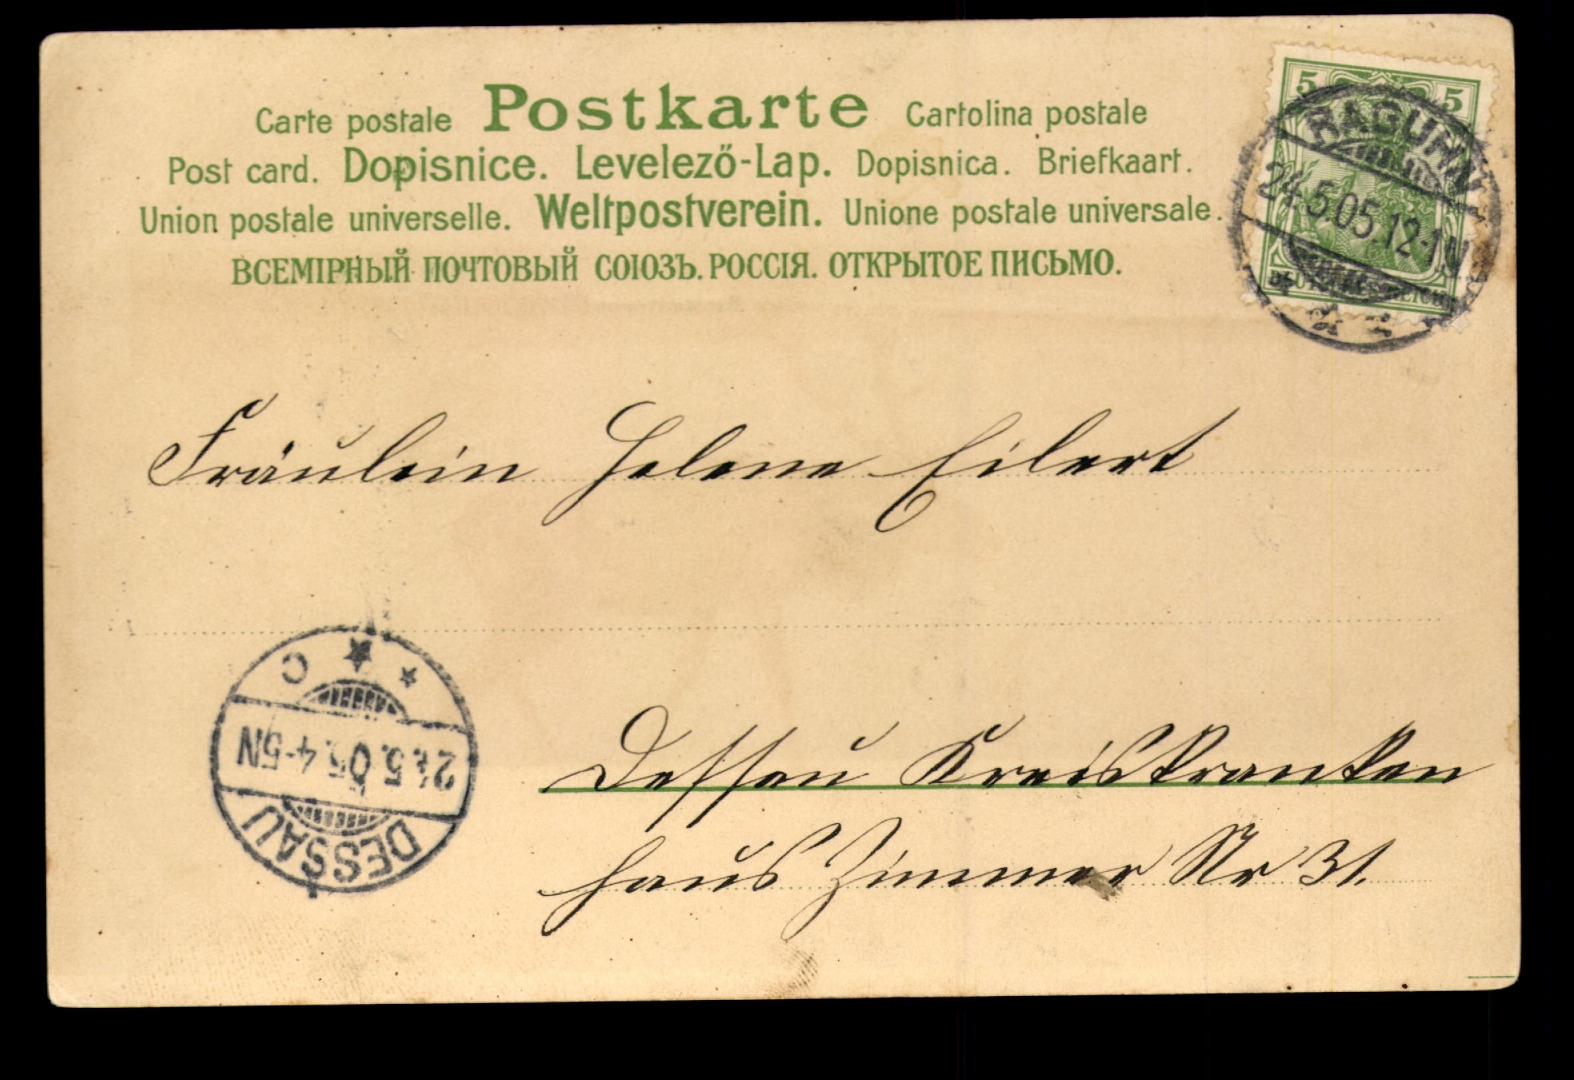 Carte postale Postkarte Cartolina postale
Post card. Dopisnice. Levelező-Lap. Dopisnica. Briefkaart.
Union postale universelle. Weltpostverein. Unione postale universale.
ВСЕМІРНЫЙ ПОЧТОВЫЙ СОЮЗЪ. РОССІЯ. ОТКРЫТОЕ ПИСЬМО.
5 5
RAGUHN
24.5.05.12-1N
Fräulein Helene Eilert
C
24.5.05.4-5N
DESSAU
Dessau Kreiskranken
haus Zimmer Nr 31.